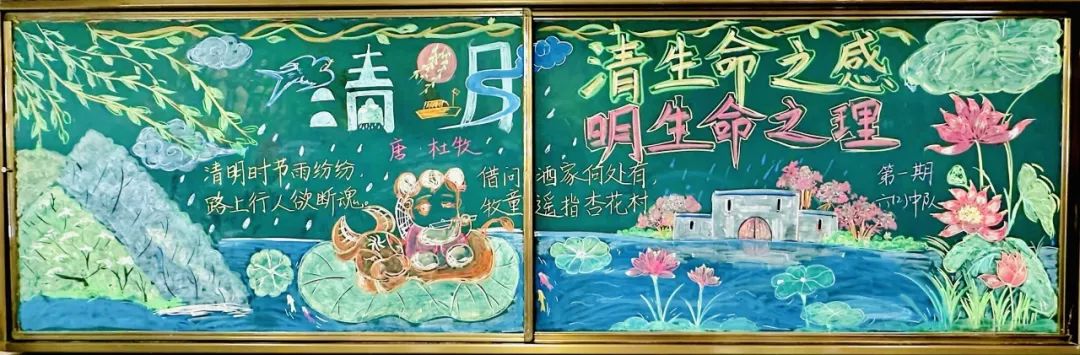 清明
清生命之感
明生命之理
唐·杜牧
清明时节雨纷纷，
路上行人欲断魂。
借问酒家何处有
牧童遥指杏花村
第一期
六(2)中队